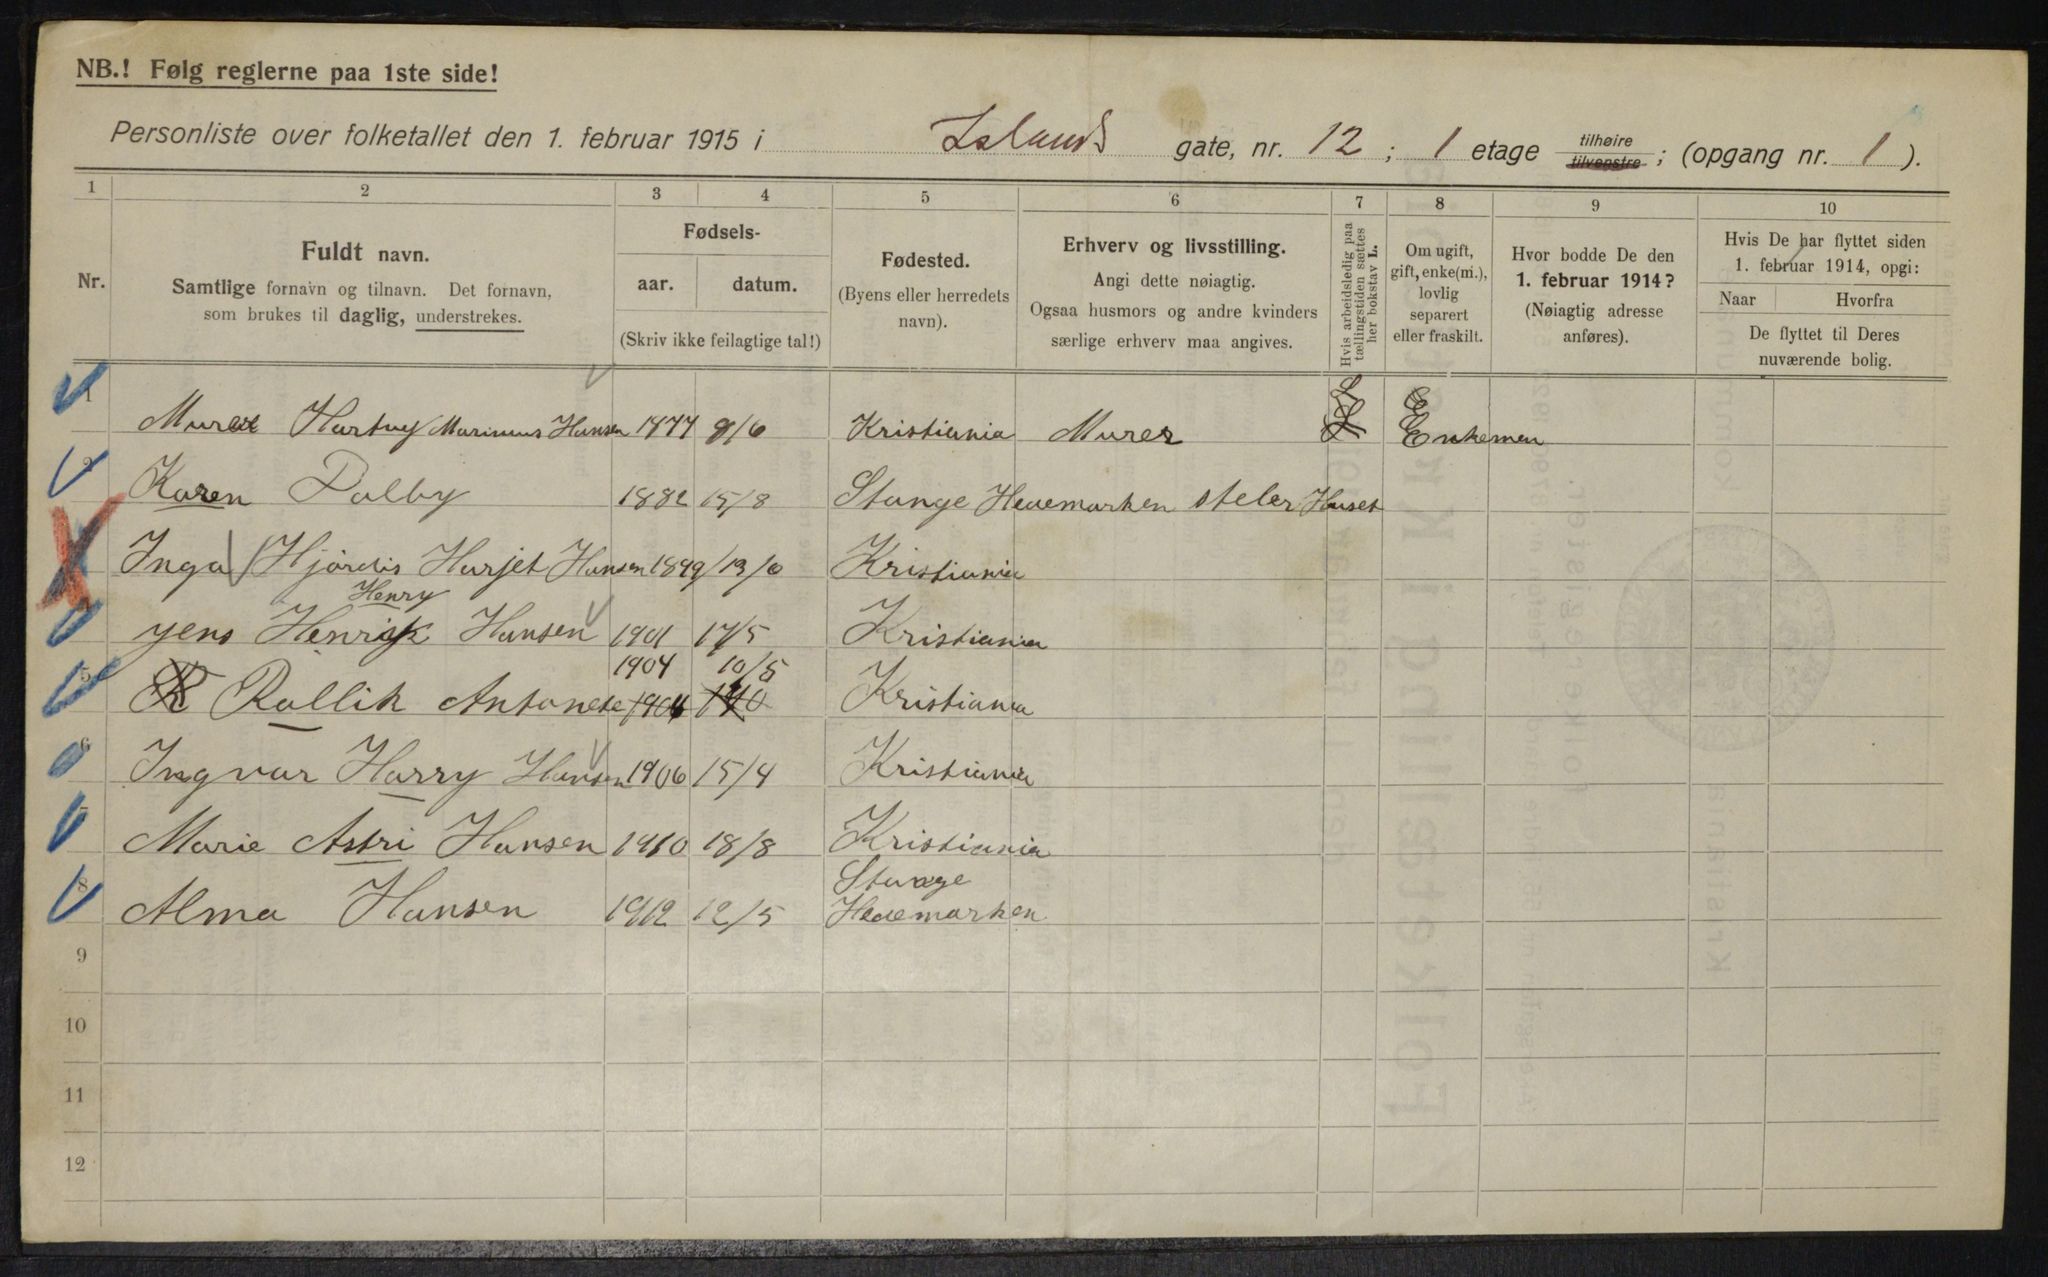 NB.! Følg reglerne paa 1ste side!
Personliste over folketallet den 1. februar 1915 i Islands gate, nr. 12 ; 1 etage tilhøire tilvenstre ; (opgang nr. 1 ).
1 2 3 4 5 6 7 8 9 10
Nr.
Fuldt navn.
Samtlige fornavn og tilnavn. Det fornavn,
som brukes til daglig, understrekes.
Fødsels-
aar. datum.
(Skriv ikke feilagtige tal!)
Fødested.
(Byens eller herredets
navn).
Erhverv og livsstilling.
Angi dette nøiagtig.
Ogsaa husmors og andre kvinders
særlige erhverv maa angives.
Hvis arbeidsledig paa
tællingstiden sættes
her bokstav L.
Om ugift,
gift, enke(m.),
lovlig
separert
eller fraskilt.
Hvor bodde De den
1. februar 1914?
(Nøiagtig adresse
anføres).
Hvis De har flyttet siden
1. februar 1914, opgi:
Naar Hvorfra
De flyttet til Deres
nuværende bolig.
1 Murer Hartvig Marinius Hansen 1877 9/6 Kristiania Murer L E Enkeman
2 Karen Dalby 1882 15/8 Stange Hedemarken steler Huset
Inga Hjørdis Harjet Hansen 1899 13/6 Kristiania
Henry
yens Henrik Hansen 1901 17/5 Kristiania
1904 10/5
5 Rallik Antonete Kristiania
6 Ingvar Harry Hansen 1906 15/4 Kristiania
7 Marie Astri Hansen 1910 18/8 Kristiania
Stange
8 Alma Hansen 1912 12/5 Hedemarken
9
10
11
12